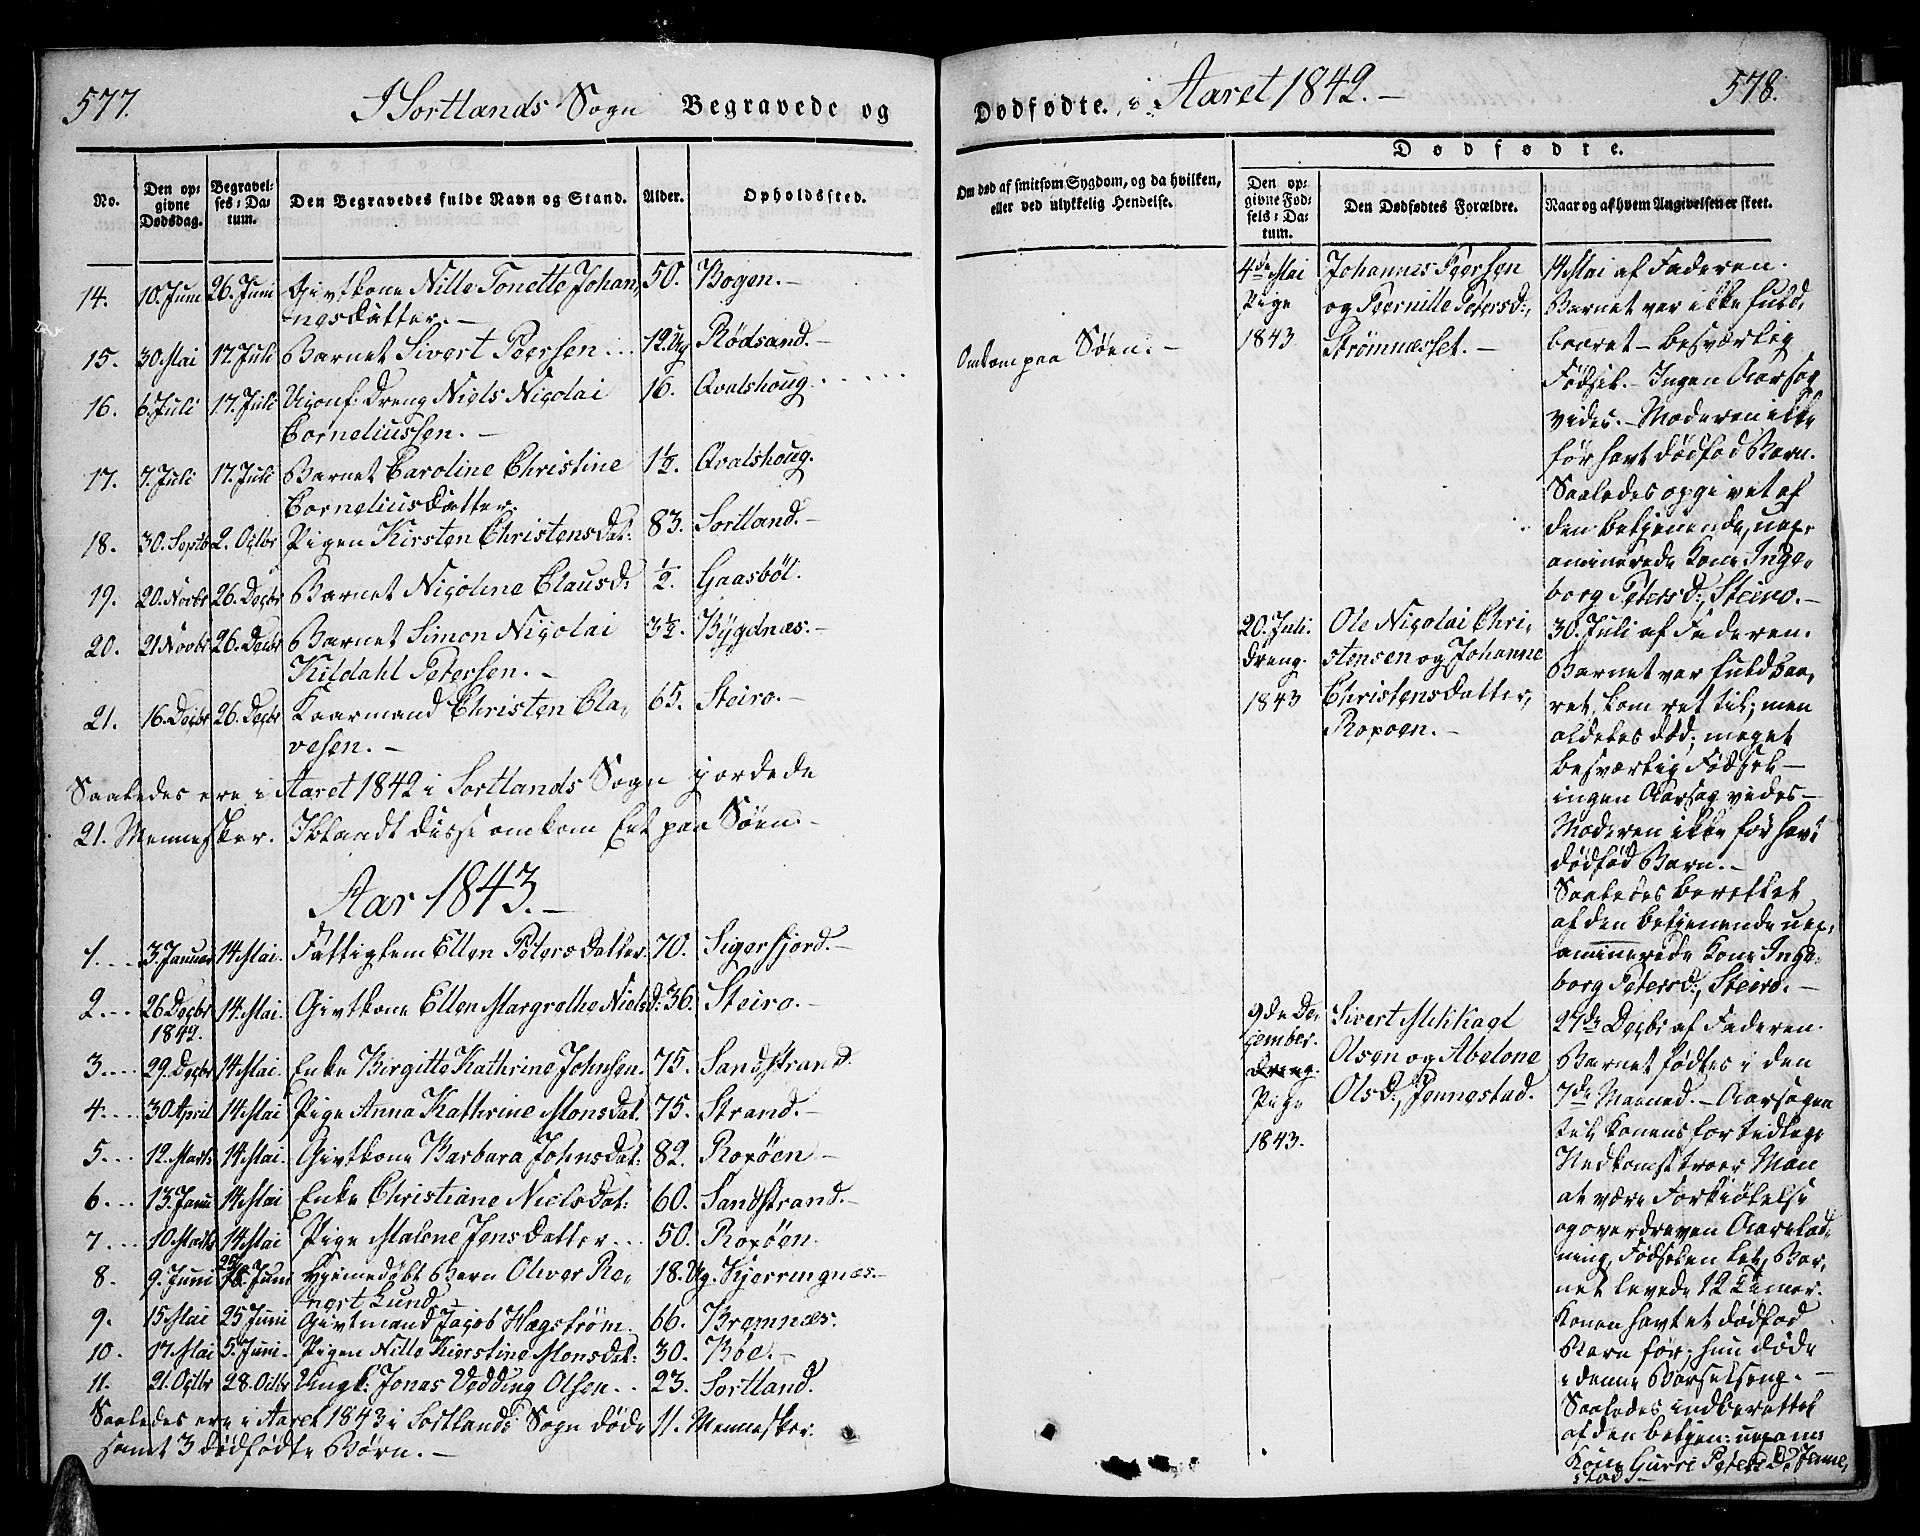 577.
I Sortlands Sogn Begravede og
No.
Den opgivne Dødsdag.
Begravelses-Datum.
Den Begravedes fulde Navn og Stand.
Alder.
Opholdssted.
14. 10. Juni 26. Juni Givtkone Nille Tonette Johan- 50. Bogen.-
nesdatter.-
15. 30 Mai 17. Juli Barnet Sivert Peersen... 12 Ug Rødsand.-
16. 6. Juli 17. Juli Uconf. Dreng Niels Nicolai 16. Qvalshoug.
Corneliussen.-
17. 7. Juli 17. Juli Barnet Caroline Christine 1½. Qvalshoug.
Corneliusdatter.
18. 30. Septb 2. Octbr Pigen Kirsten Christensdat: 83. Sortland.-
19. 20. Novbr 26. Decbr Barnet Nicoline Clausd: ½. Gaasbøl.
20. 21 Novbr 26. Decbr Barnet Simon Nicolai 3½. Bygdnæs.-
Kildahl Petersen.-
21. 16. Decbr 26. Decbr Kaarmand Christen Cla- 65. Steiro.-
vesen.-
Saaledes ere i Aaret 1842 i Sortlands Sogn jordede
21. Mennesker. Iblandt disse omkom Eet paa Søen.-
Aar 1843.-
1... 3. Januar 14 Mai. Fattiglem Ellen Petersdatter 70. Sigerfjord.-
2... 26 Decbr 14. Mai. Givtkone Ellen Margrethe Nielsd: 36. Steiro.-
1842.
3... 29. Decbr 14 Mai. Enke Birgitte Kathrine Johnsen. 75. Sandstrand.
4... 30. April 14 Mai Pige Anna Kathrine Monsdat. 75. Strand.-
5... 12. Marts 14 Mai. Givtkone Barbara Johnsdat: 82. Roxøen-
6... 13. Janu 14 Mai Enke Christiane Nielsdat: 60. Sandstrand.-
7... 10 Marts 14 Mai Pige Malene Jensdatter... 50. Roxøen.
8. 9. Juni 25 Juni Hjemmedøbt Barn Oliver Re- 18. Ug. Kjerringnæs.-
nert Lund
9. 15 Mai 25 Juni Givtmand Jacob Hagstrøm. 66. Bremnæs.
10. 17 Mai 5. Juni. Pigen Nille Kierstine Monsdat: 30. Bøe.-
11. 21. Octbr 28. Octbr Ungk: Jonas Vedding Olsen.. 23. Sortland.
Saaledes ere i Aaret 1843 i Sortlands Sogn døde 11. Mennesker.
samt 3 dødfødte Børn.-
Dødfødte. i Aaret 1842.- 578.
Om død af smitsom Sygdom, og da hvilken,
eller ved ulykkelig Hendelse.
Dødfødte.
Den opgivne Fødsels-Datum.
Den Dødfødtes Forældre.
Naar og af hvem Angivelsen er skeet.
Omkom paa Søen.-
4de Mai
Pige
1843
Johannes Peersen
og Pernille Petersd:,
Strømnæsset.-
14 Mai af Faderen.
Barnet var ikke fuld-
baaret - besværlig
Fødsel.- Ingen Aarsag
vides.- Moderen ikke
før havt dødfød Barn.
Saaledes opgivet af
den betjenende, uex-
aminerede Kone Inge-
borg Petersd:, Steiro.-
20. Juli.
Dreng.
1843
Ole Nicolai Chri-
stensen og Johanne
Christensdatter,
Roxøen.-
30. Juli af Faderen.
Barnet var fuldbaa-
ret, kom ret til; men
aldeles død; meget
besværlig Fødsel-
ingen Aarsag vides-
Moderen ikke før havt
dødfød Barn.-
Saaledes berettet
af den betjenende uex-
aminerede Kone Inge-
borg Petersd:, Steiro.-
9de De-
cember.
Dreng.
Pige
1843.
Sivert Mikkael
Olsen og Abelone
Olsd:, Jennestad.
27de Decbr af Faderen.
Barnet fødtes i den
7de Maaned.- Aarsagen
til Konens for tidlige
Nedkomst troer Man
at være Forkiølelse
og overdreven Aarelad-
ning, Fødselen let, Bar-
net levede 12 Timer.
Konen havt et dødfød
Barn før; hun døde
i denne Barselseng.-
Saaledes indberettet
af den betjen: uexam:
Kone Gurre Petersd: Jenne-
stad.-